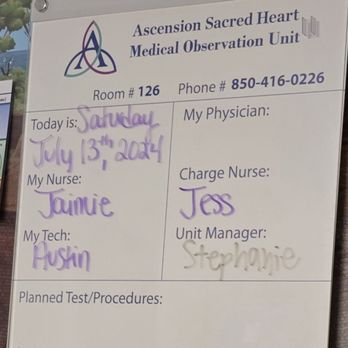 Ascension Sacred Heart
Medical Observation Unit
A
Room # 126 Phone # 850-416-0226
Today is: Saturday
July 13th, 2024
My Physician:
My Nurse:
Jaimie
Charge Nurse:
Jess
My Tech:
Austin
Unit Manager:
Stephanie
Planned Test/Procedures: